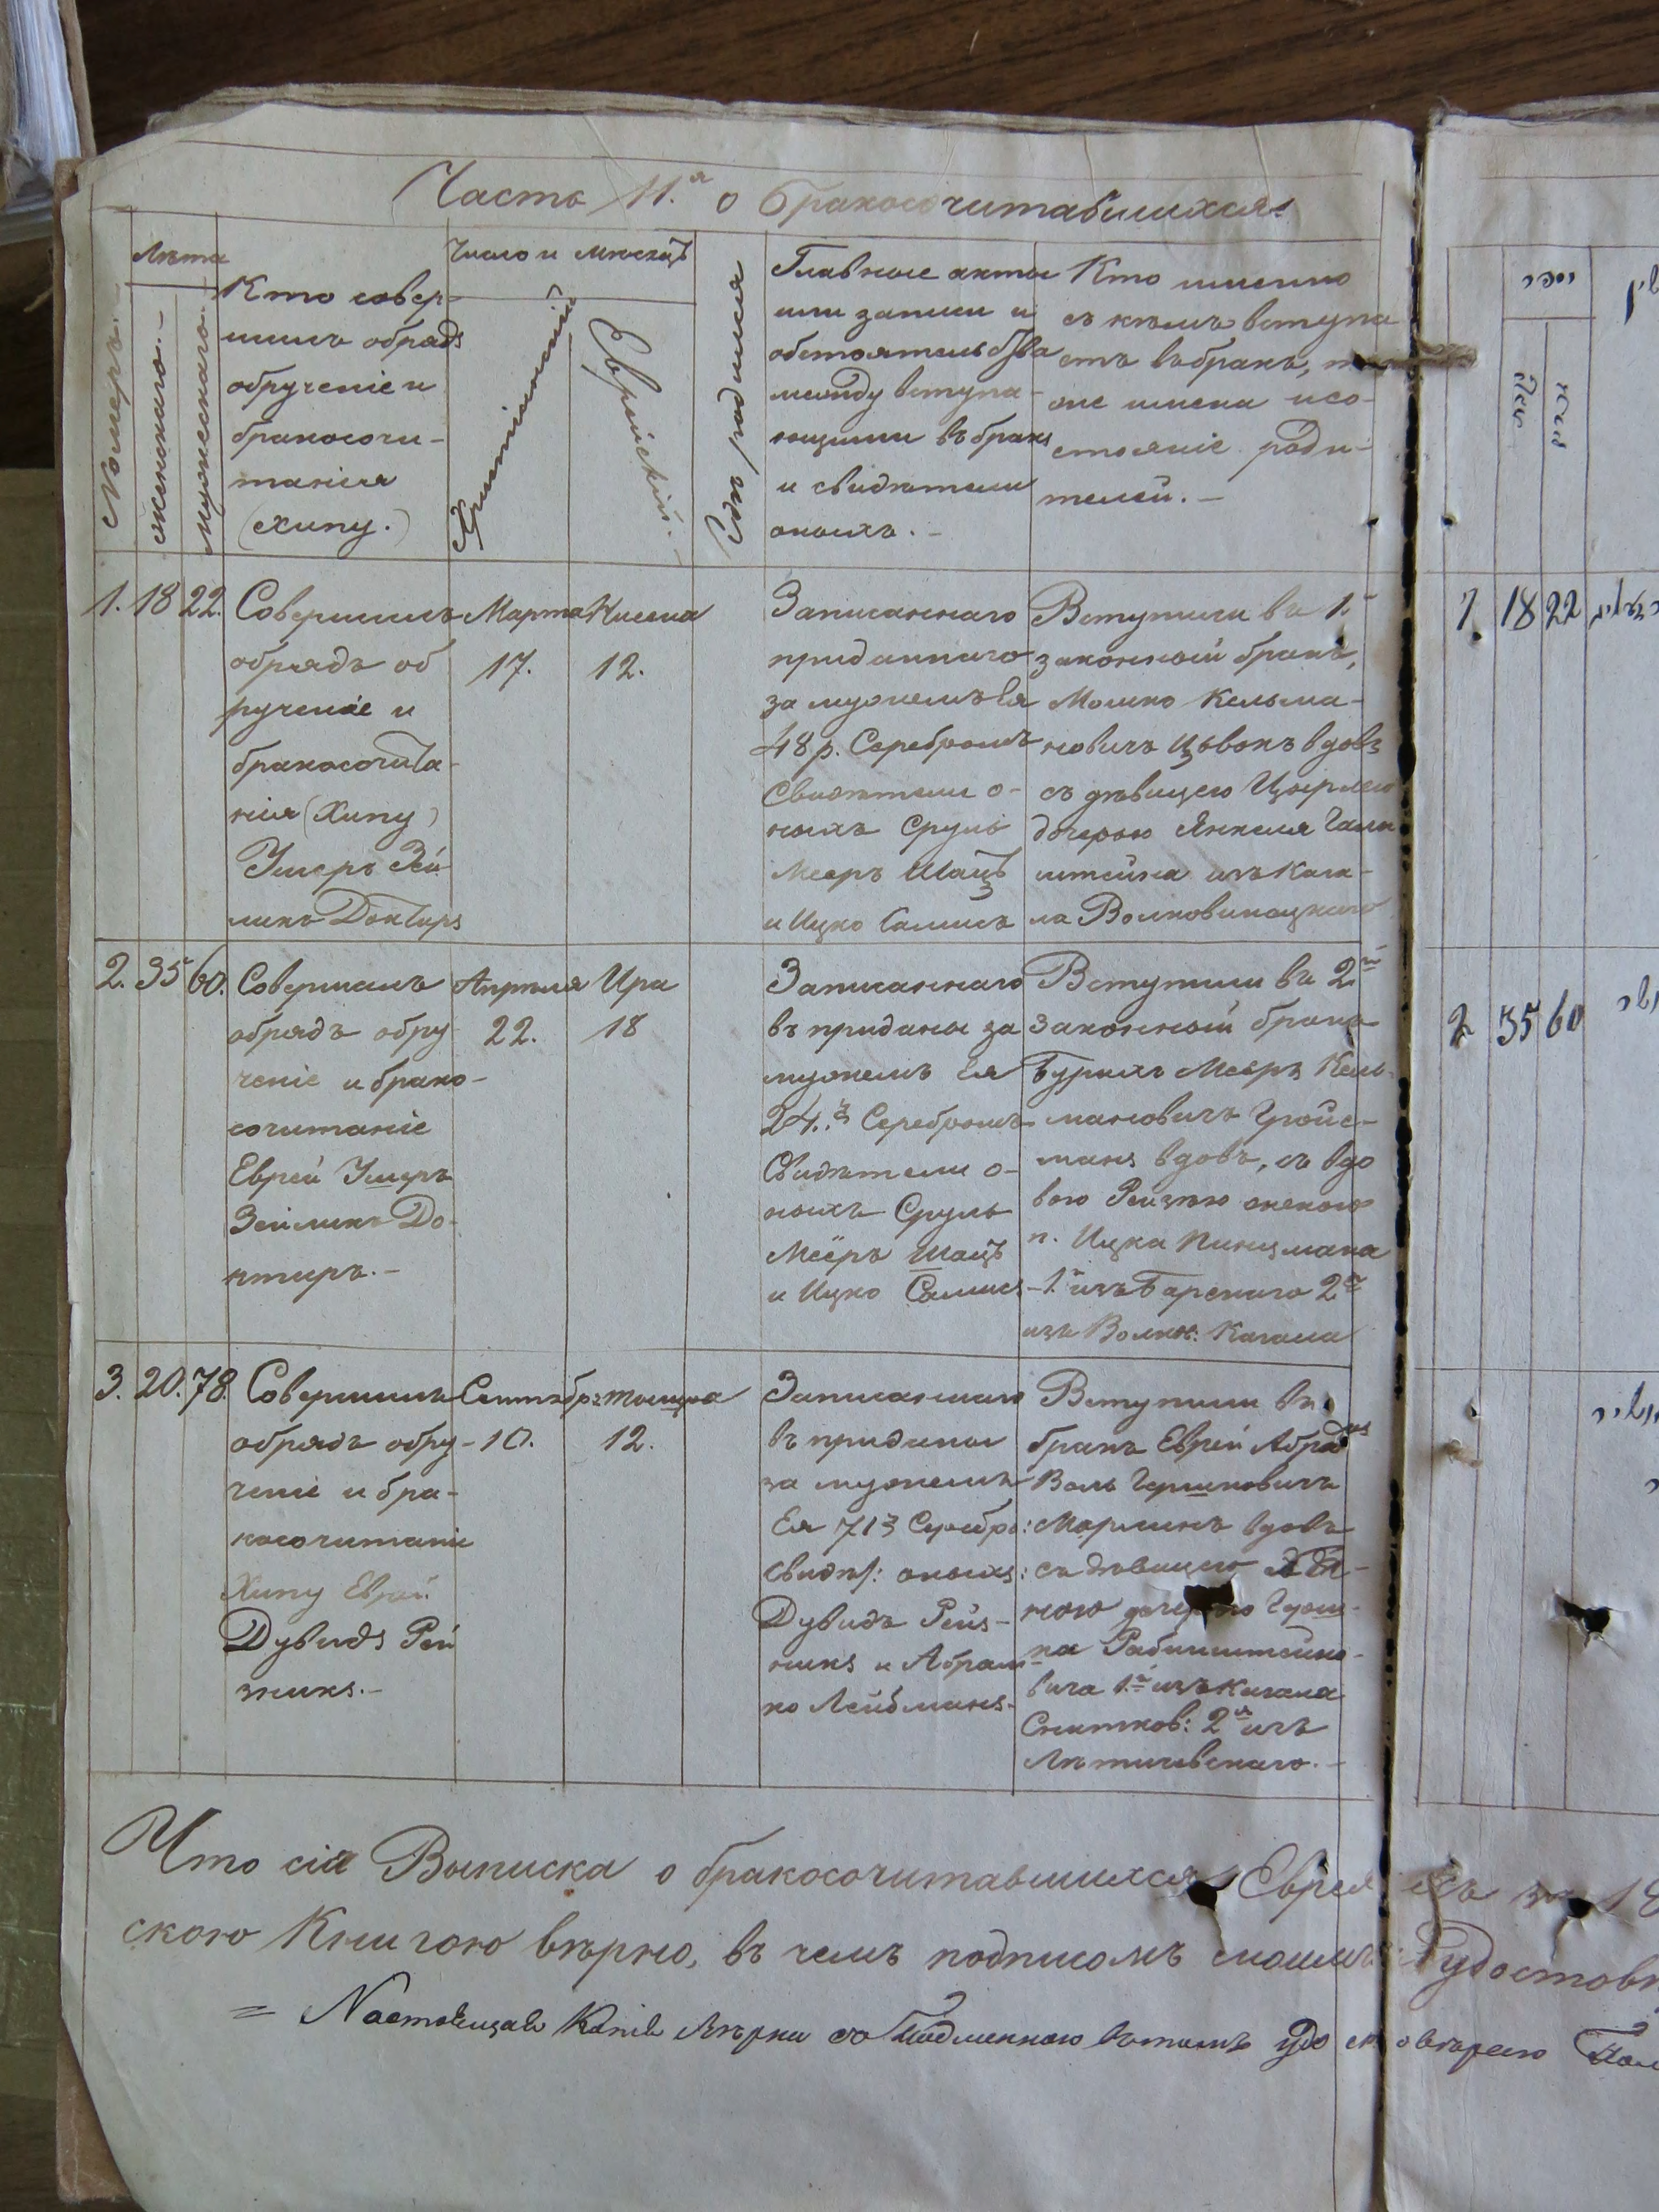 Часть 11.я о бракосочитавшихся.
Номеръ.
Лѣта
женскаго.
мужескаго.
Кто совер-
шилъ обрядъ
обрученіе и
бракосочи-
танія
(хипу.)
Число и мѣсяцъ
Христіянскій
Еврейскій.
Гдѣ родился
Главные акты
или записи и
обстоятельства
между вступа-
ющими въ бракъ
и свидѣтели
оныхъ.
Кто именно
съ кѣмъ вступа
етъ въ бракъ,
же имена и со-
стояніе роди-
телей.
1. 18 22.
Совершилъ
обрядъ об
рученіе и
бракосочита-
нія (Хипу)
Ушеръ Зей
ликъ Докторъ
Марта
17.
Нисена
12.
Записаннаго
приданнаго
за мужемъ Ея
48 р. Серебромъ
Свидѣтели о-
ныхъ Сруль
Мееръ Шацъ
и Ицко Салисъ
Вступили въ 1.
законный бракъ,
Мошко Кельма-
новичъ Цвокъ вдовъ
съ дѣвицею Цырлею
дочерью Янкеля
штейна изъ Кага-
ла Волковинецкаго
2. 35 60.
Совершилъ
обрядъ обру
ченіе и брако-
сочитаніе
Еврей Ушеръ
Зейликъ До-
ктиръ.-
Апрѣля
22.
Ира
18
Записаннаго
въ приданы за
мужемъ Ея
24. Серебромъ
Свидѣтели о-
ныхъ Сруль
Меёръ Шацъ
и Ицко Салисъ
Вступили въ 2й
законный бракъ
Бурихъ Меёръ Кель-
мановичъ Гройс-
манъ вдовъ, съ вдо
вою Рейзею женою
п. Ицка Пинцмана
1й изъ Барскаго 2я
изъ Волков: Кагала
3. 20. 78.
Совершилъ
обрядъ обру-
ченіе и бра-
косочитаніе
Хипу Еврей
Дувидъ Рей
зникъ.-
Сентябр:
10.
тышра
12.
Записаннаго
въ приданы
за мужемъ
Ея 71 Серебр:
свидѣт: оныхъ:
Дувидъ Рейз-
никъ и Абрам-
ко Лейбманъ.
Вступили въ
бракъ Еврей Абра
Воль Гершковичъ
Марликъ вдовъ
съ дѣвицею
ною дочерью Герш-
ка Рабинштейно-
вича 1й изъ Кагала
Снитков: 2я изъ
Лѣтичевскаго.-
Что сія Выписка о бракосочитавшихся Еврея хъ за 18
скою Книгою вѣрно, въ чемъ подписомъ моимъ удостовѣ
1. 18 22
2 35 60